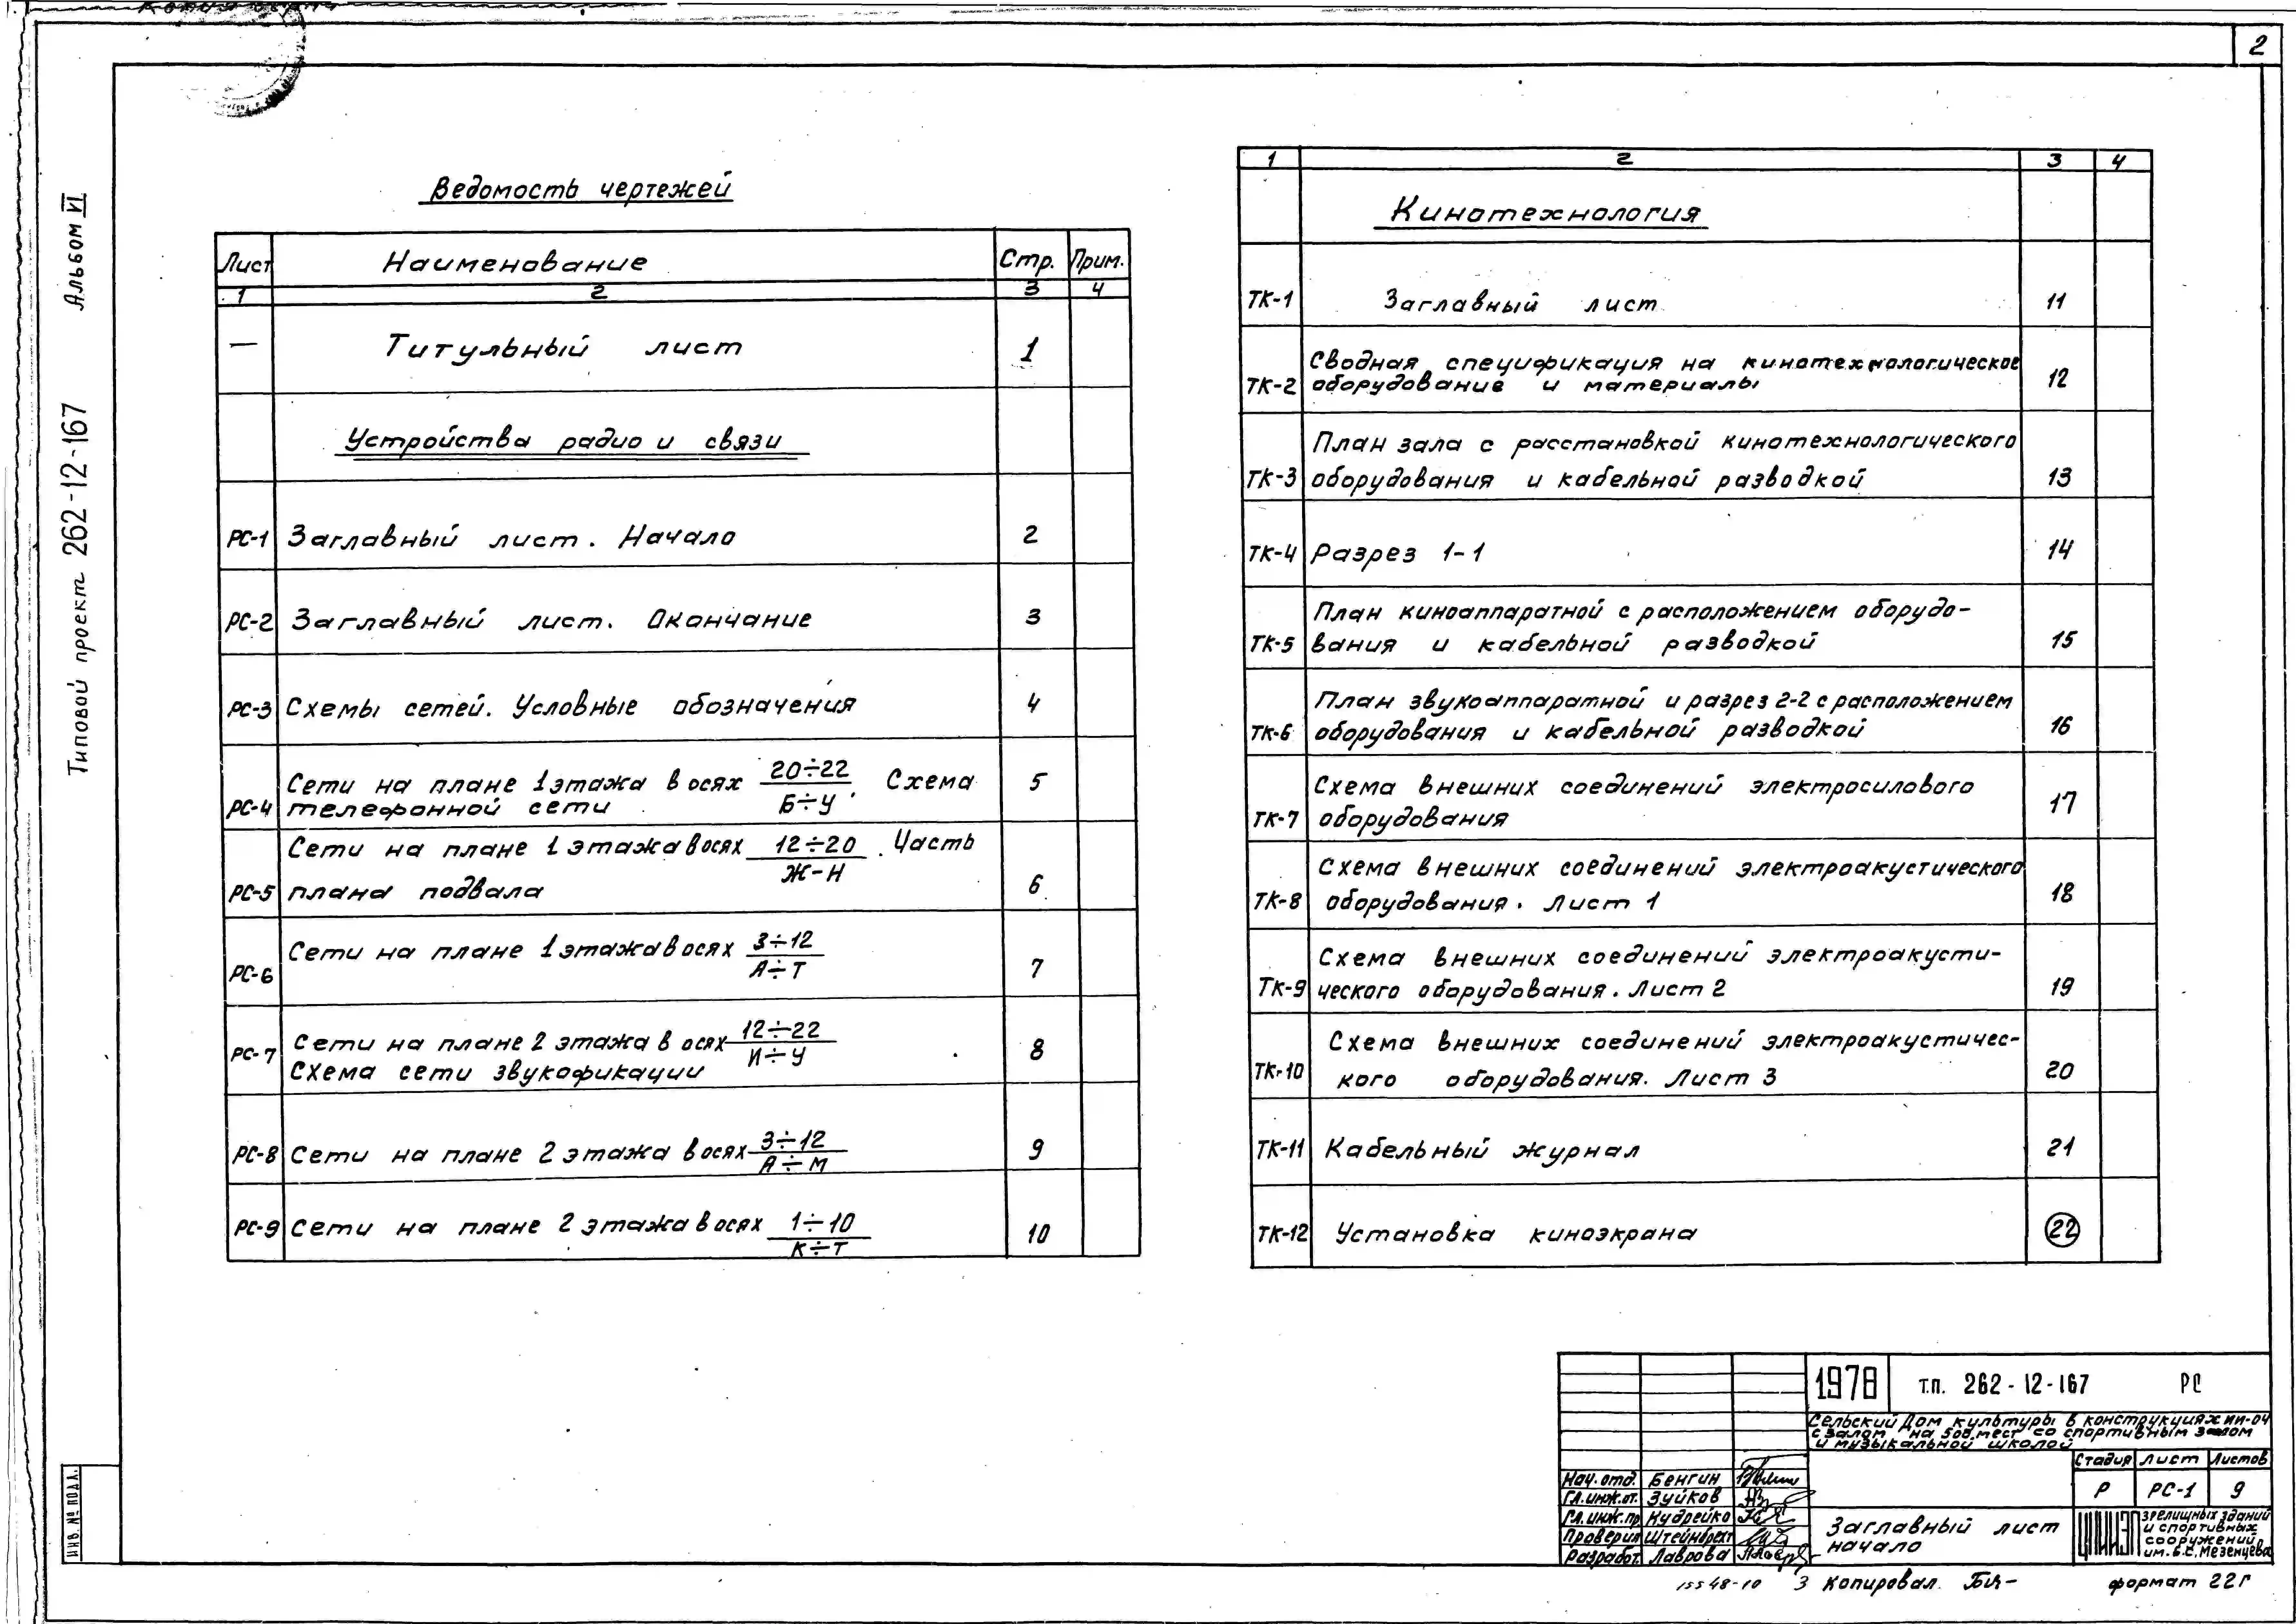 2
Альбом VI
Типовой проект 262-12-167
ИНВ. № ПОДЛ.
Ведомость чертежей
Лист Наименование Стр. Прим.
1 2 3 4
— Титульный лист 1
Устройства радио и связи
РС-1 Заглавный лист. Начало 2
РС-2 Заглавный лист. Окончание 3
РС-3 Схемы сетей. Условные обозначения 4
Сети на плане 1 этажа в осях 20÷22/Б÷У. Схема 5
РС-4 телефонной сети
Сети на плане 1 этажа в осях 12÷20/Ж-Н. Часть
РС-5 плана подвала 6
РС-6 Сети на плане 1 этажа в осях 3÷12/А÷Т 7
РС-7 Сети на плане 2 этажа в осях 12÷22/И÷У 8
Схема сети звукофикации
РС-8 Сети на плане 2 этажа в осях 3÷12/А÷М 9
РС-9 Сети на плане 2 этажа в осях 1÷10/К÷Т 10
1 2 3 4
Кинотехнология
ТК-1 Заглавный лист 11
Сводная спецификация на кинотехнологическое
ТК-2 оборудование и материалы 12
План зала с расстановкой кинотехнологического
ТК-3 оборудования и кабельной разводкой 13
ТК-4 Разрез 1-1 14
План киноаппаратной с расположением оборудо-
ТК-5 вания и кабельной разводкой 15
План звукоаппаратной и разрез 2-2 с расположением
ТК-6 оборудования и кабельной разводкой 16
Схема внешних соединений электросилового
ТК-7 оборудования 17
Схема внешних соединений электроакустического
ТК-8 оборудования. Лист 1 18
Схема внешних соединений электроакусти-
ТК-9 ческого оборудования. Лист 2 19
Схема внешних соединений электроакустичес-
ТК-10 кого оборудования. Лист 3 20
ТК-11 Кабельный журнал 21
ТК-12 Установка киноэкрана 22
1978 Т.П. 262-12-167 РС
Сельский Дом культуры в конструкциях ИИ-04
с залом на 500 мест со спортивным залом
и музыкальной школой
Стадия Лист Листов
Р РС-1 9
Нач. отд. Бенгин
Гл. инж. от. Зуйков
Гл. инж. пр Кудрейко
Проверил Штейнбрехт
Разработ. Лаврова
Заглавный лист
начало
ЦНИИЭП зрелищных зданий
и спортивных
сооружений
им. Б.С. Мезенцева
15548-10 3 Копировал формат 22Г